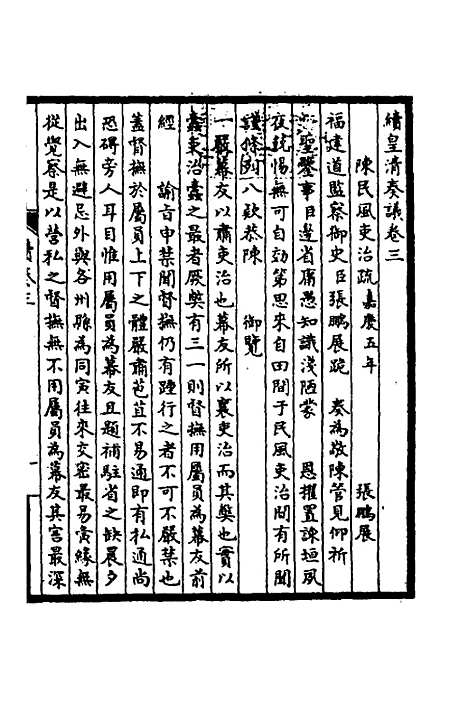 續皇清奏議卷三
陳民風吏治疏嘉慶五年 張鵬展
福建道監察御史臣張鵬展跪 奏為敬陳管見仰祈
聖鑒事臣邊省庸愚知識淺陋蒙 恩擢置諫垣夙
夜兢惕無可自効第思來自田間于民風吏治間有所聞
謹條列八欵恭陳 御覽
一嚴幕友以肅吏治也幕友所以襄吏治而其獘也實以
蠹吏治蠹之最者厥獘有三一則督撫用屬員為幕友前
經 諭旨申禁聞督撫仍有踵行之者不可不嚴禁也
蓋督撫於屬員上下之體嚴肅苞苴不易通即有私通尚
恐礙旁人耳目惟用屬員為幕友且題補駐省之缺晨夕
出入無避忌外與各州縣為同寅往來交密最易夤緣無
從覺察是以營私之督撫無不用屬員為幕友其害最深